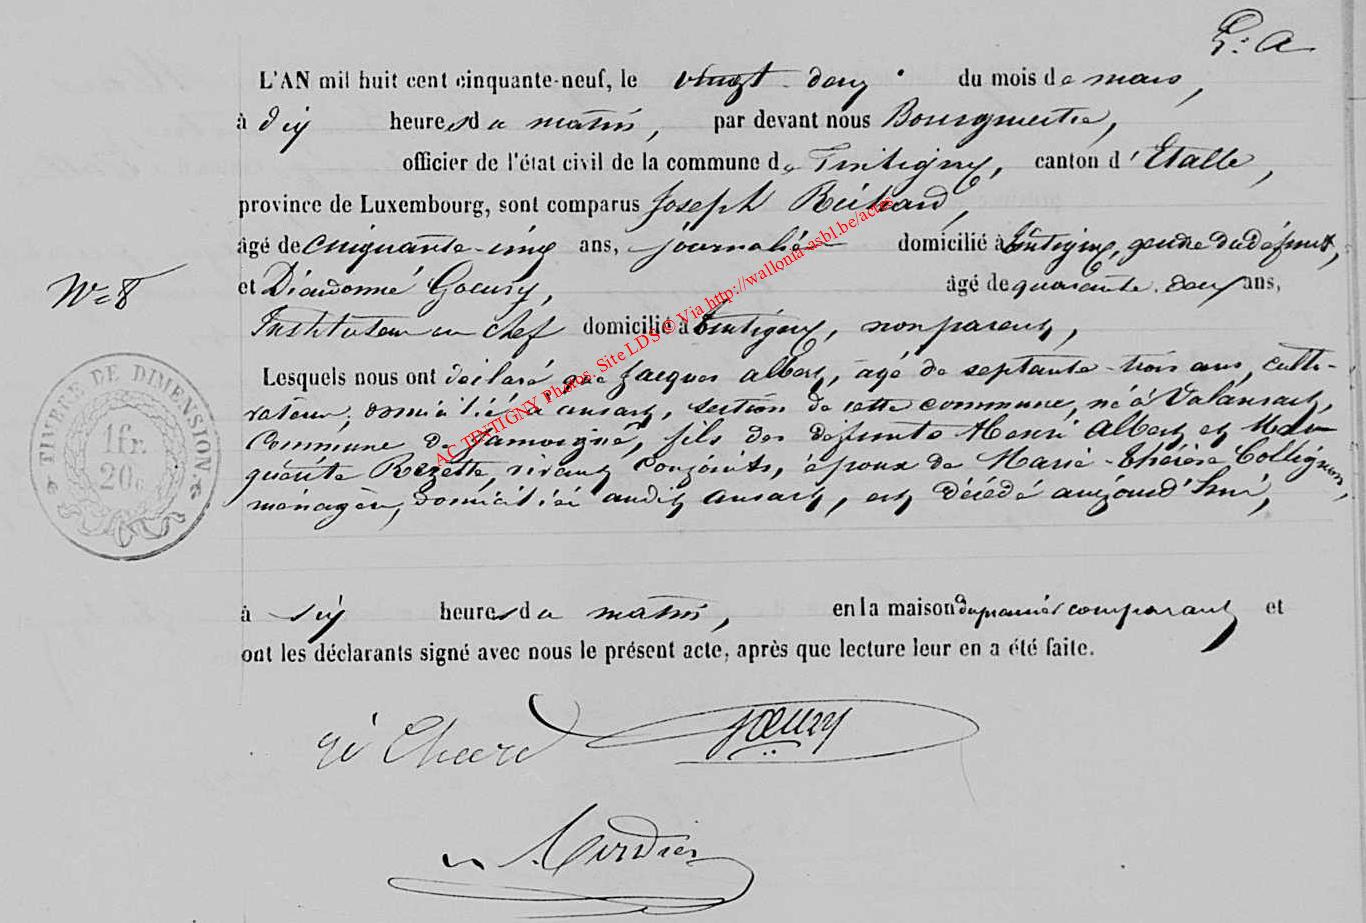 L'AN mil huit cent cinquante-neuf, le vingt-deux du mois de mars,
à dix heures du matin, par devant nous Bourgmestre,
officier de l'état civil de la commune de Tintigny, canton d'Etalle,
province de Luxembourg, sont comparus Joseph
âgé de cinquante-cinq ans, journalier domicilié à Tintigny, gendre du défunt,
N° 8
et Dieudonné Goeury, âgé de quarante-deux ans,
Instituteur en chef domicilié à Tintigny, non parent,
Lesquels nous ont déclaré que Jacques Albert, âgé de septante-trois ans, culti-
vateur, domicilié à Ansart, section de cette commune, né à Valansart,
Commune de Jamoigne, fils des défunts Henri Albert et Mar-
guerite Rezette, vivant conjoints, époux de Marie-Thérèse Collignon,
ménagère, domiciliée audit Ansart, est décédé aujourd'hui,
à six heures du matin, en la maison du premier comparant et
ont les déclarants signé avec nous le présent acte, après que lecture leur en a été faite.
Goeury
TIMBRE DE DIMENSION.
1 fr.
20 c
AC TINTIGNY Photos. Site LDS © Via http://wallonia-asbl.be/actes